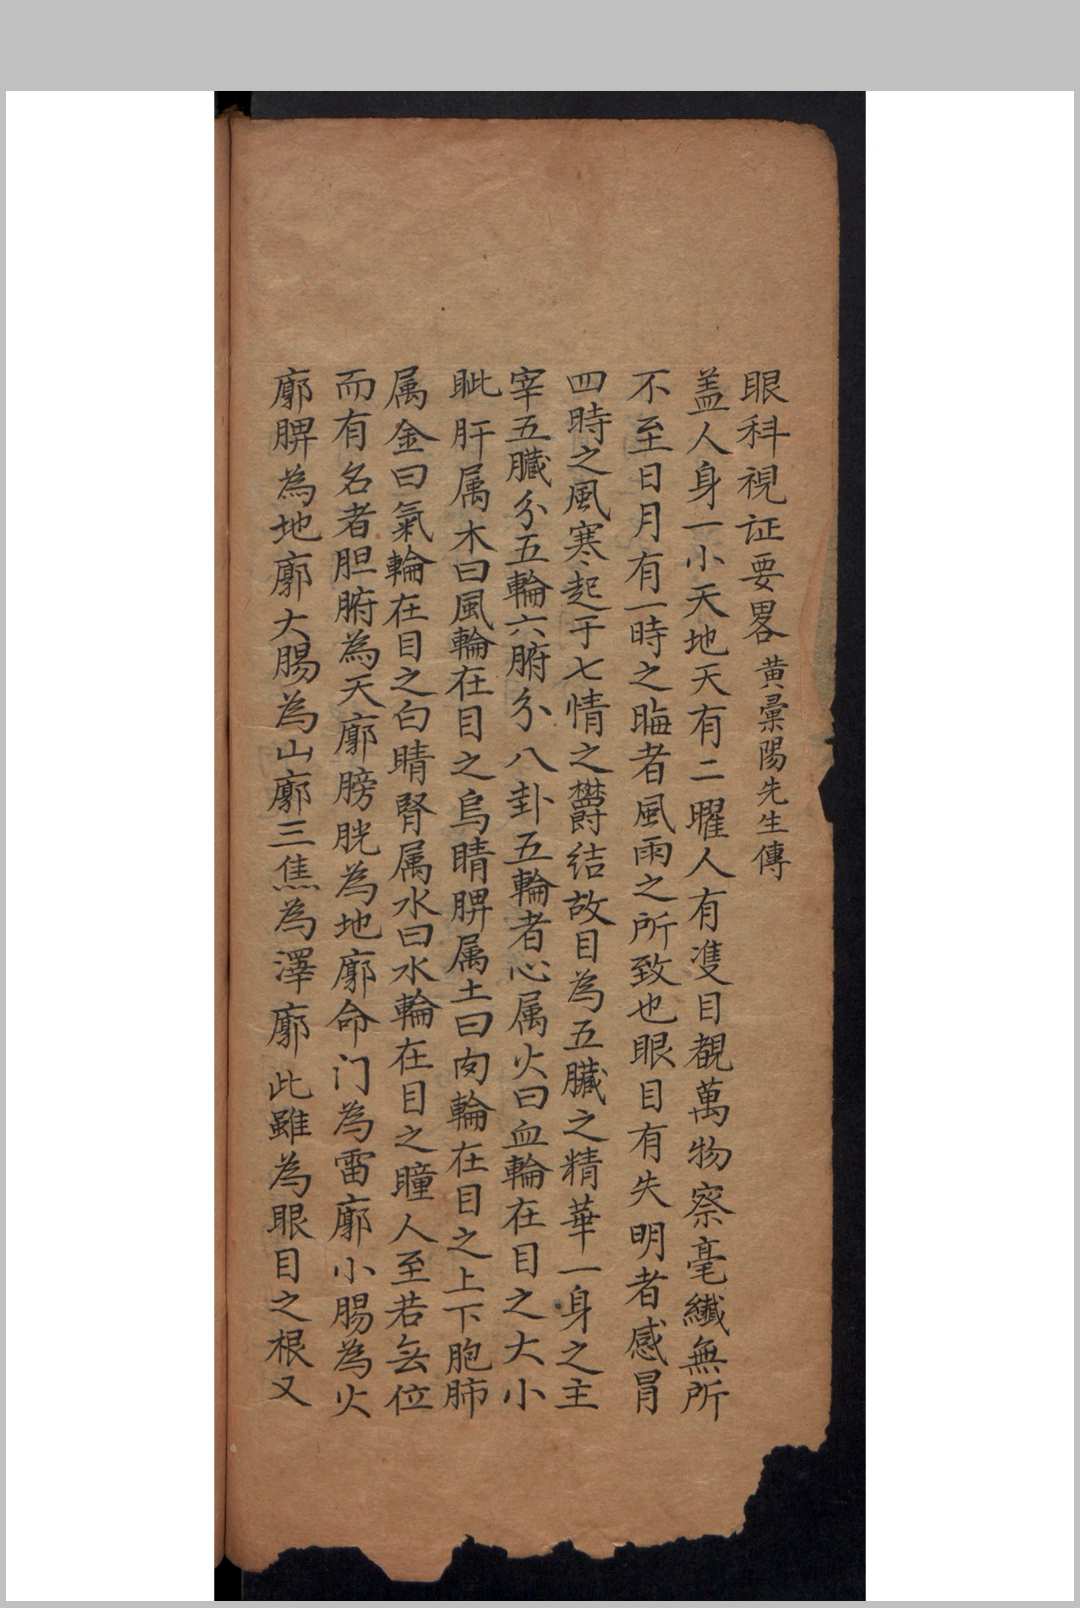 眼科視证要畧 黄彚陽先生傳
盖人身一小天地天有二曜人有隻目覩萬物察毫纖無所
不至日月有一時之晦者風雨之所致也眼目有失明者感冐
四時之風寒起于七情之欝结故目為五臟之精華一身之主
宰五臟分五輪六腑分八卦五輪者心属火曰血輪在目之大小
眦肝属木曰風輪在目之烏睛脾属土曰肉輪在目之上下胞肺
属金曰氣輪在目之白睛腎属水曰水輪在目之瞳人至若無位
而有名者胆腑為天廓膀胱為地廓命门為雷廓小腸為火
廓脾為地廓大腸為山廓三焦為澤廓此雖為眼目之根又